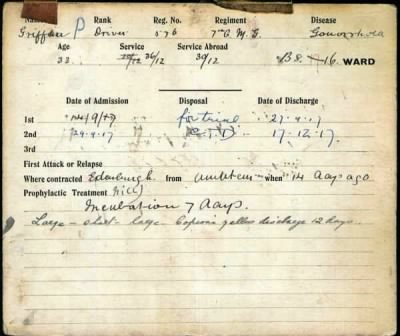 Name Rank Reg. No. Regiment Disease
Griffan P Driver 576 7th C. M. G. Gonorrhoea
Age Service Service Abroad
33 36/12 30/12 B8 16. WARD
Date of Admission Disposal Date of Discharge
1st 14/9/17 for trial 27.9.17
2nd 29.9.17 17.12.17.
3rd
First Attack or Relapse
Where contracted Edinburgh from when 14 days ago
Prophylactic Treatment Nil
Incubation 7 days.
Large – short – large. Copious yellow discharge 12 days.